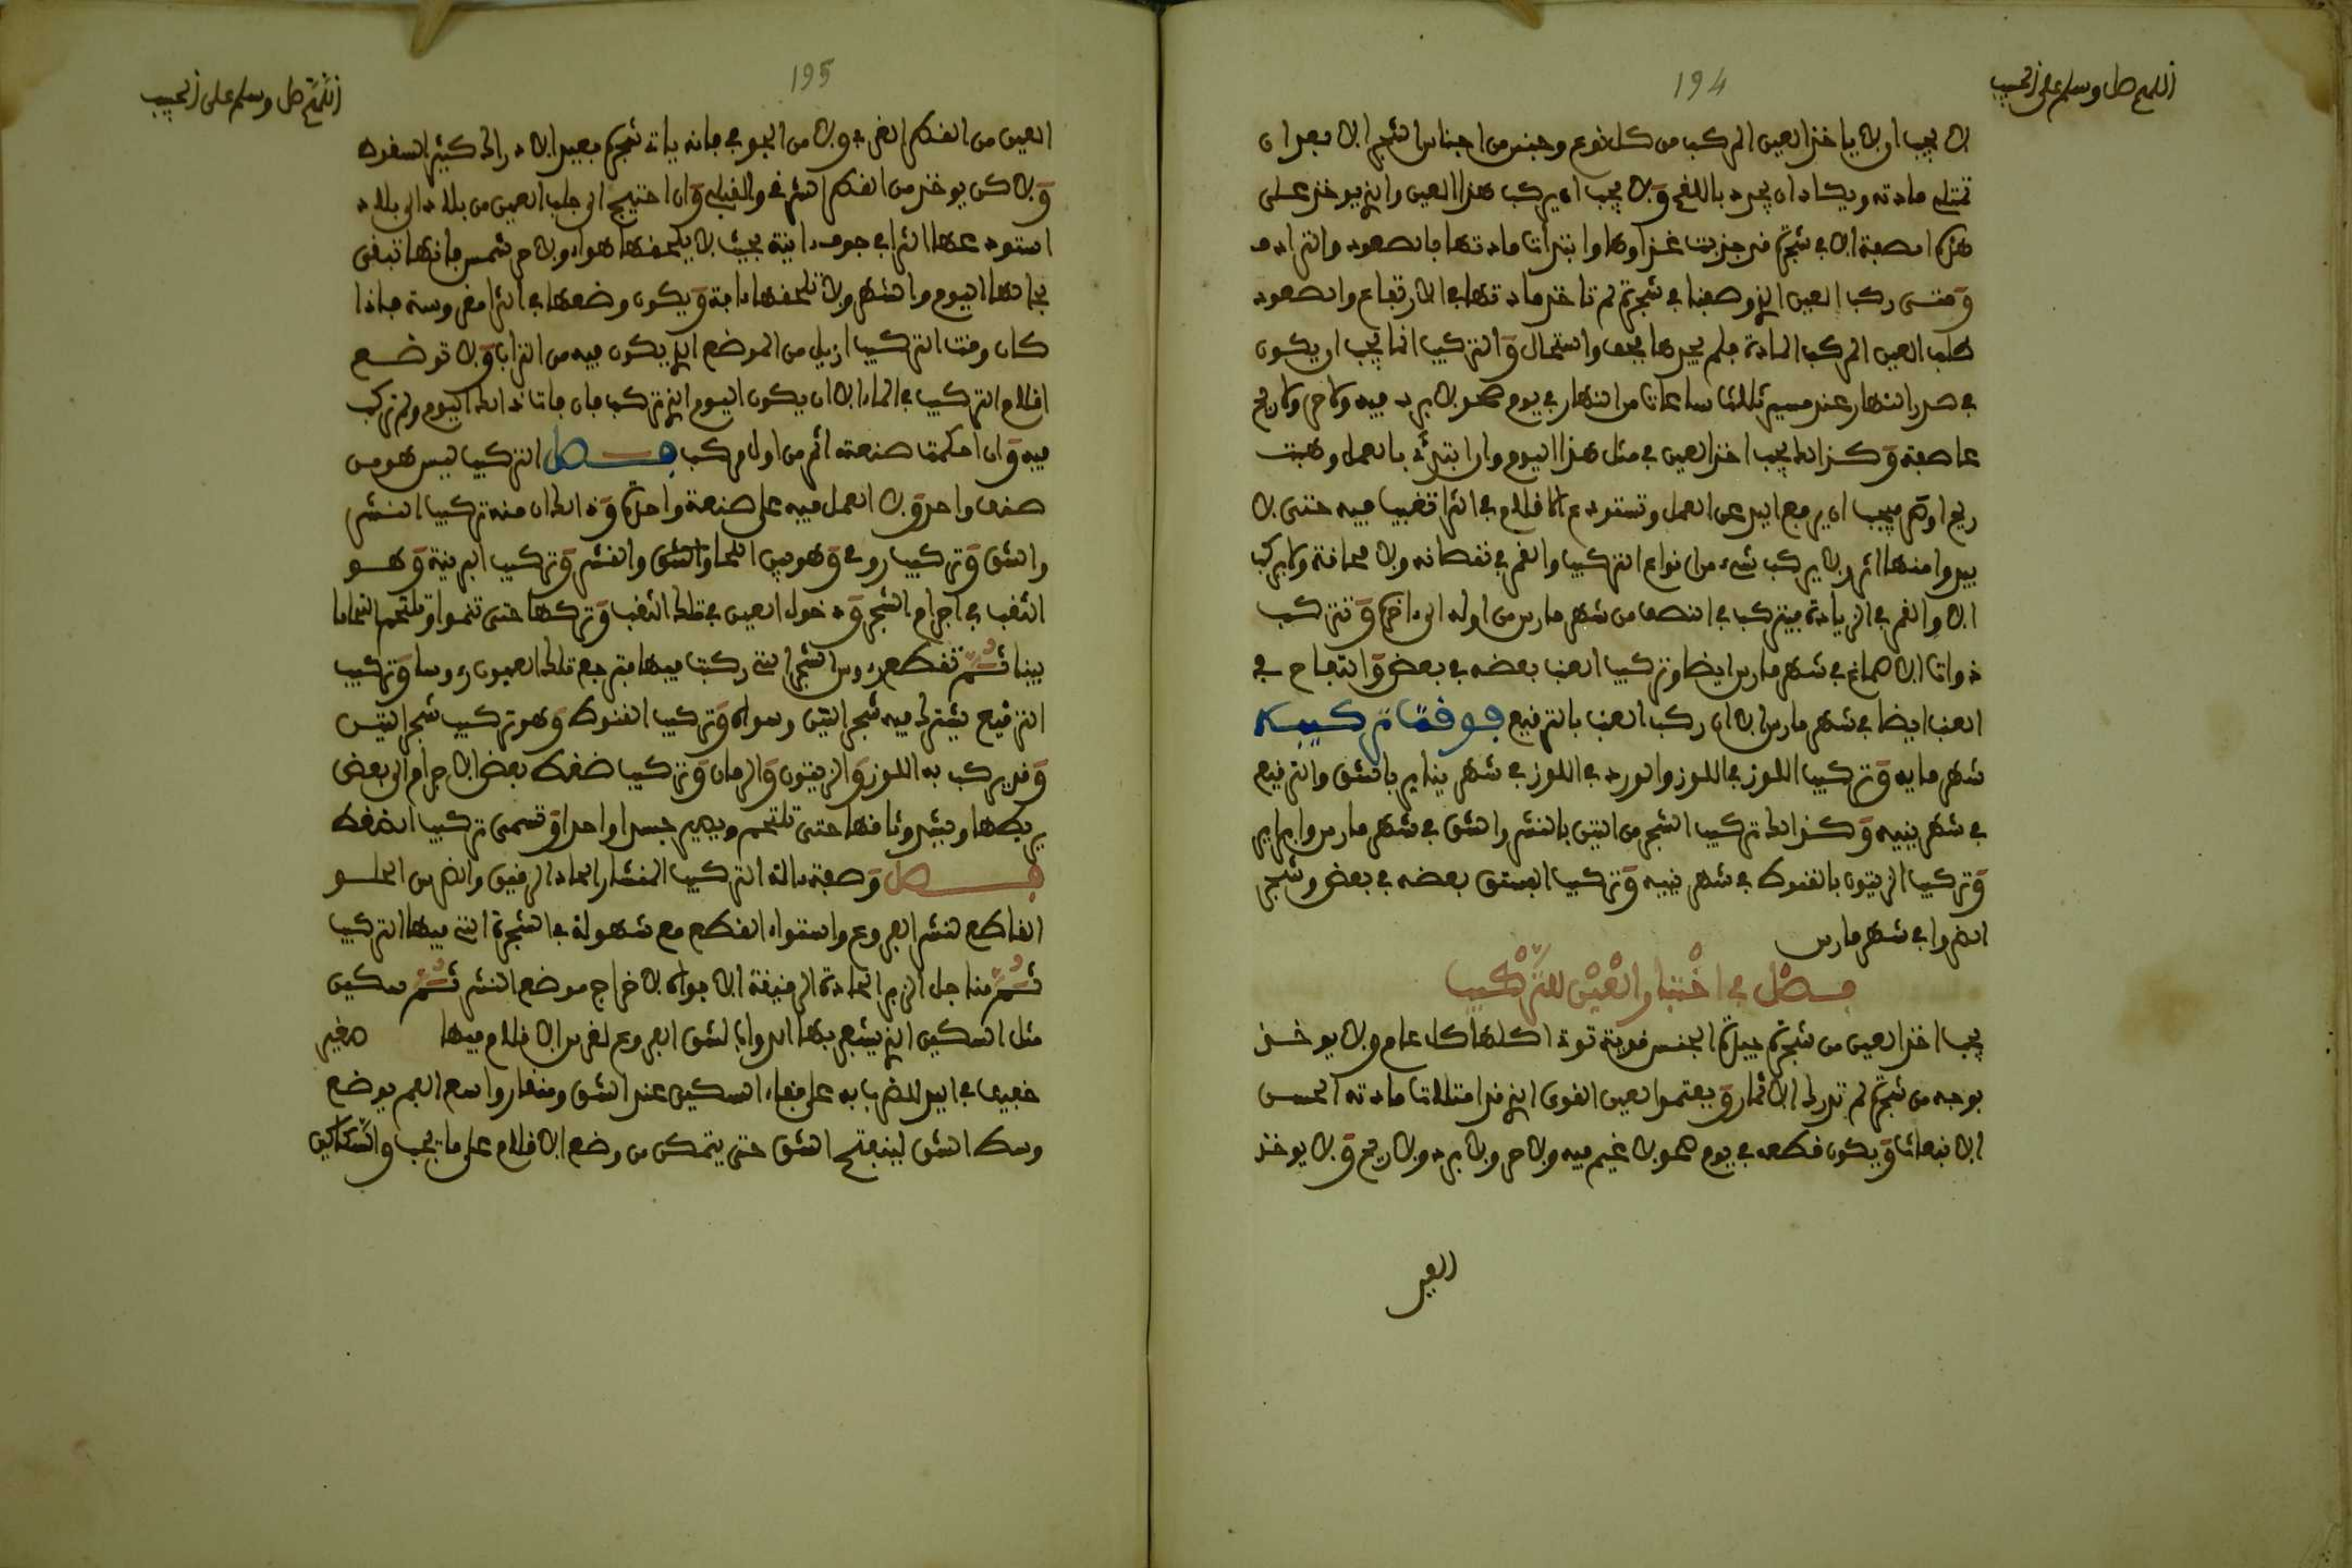 اللهم صل وسلم على الحبيب
194
لا يجب ان لا ياخذ العين المركب من كل نوع وجنس من اجناس الشجر الا بعد ان
تمتلي مادته ويكاد ان يجرد باللقح ولا يجب ان يركب هذا العين الذي يوخذ على
هذه الصفة الا في شجرة قد جذبت غذاوها وابتدات مادتها بالصعود والترادف
ومتى ركب العين الذي وصفنا في شجرة لم تاخذ مادتها في الارتفاع والصعود
طلب العين المركب المادة فلم يجدها فجف واستحال والتركيب انما يجب ان يكون
في صدر النهار عند مسير ثلاث ساعات من النهار في يوم صحو لا برد فيه ولا حر ولا ريح
عاصفة وكذلك يجب اخذ العين في مثل هذا اليوم وان ابتدئ بالعمل وهبت
ريح او حر فيجب ان يرفع اليد عن العمل وتستودع الاقلام في الثرا تغيبا فيه حتى لا
يبدوا منها اثر ولا يركب شيء من انواع التركيب والقمر في نقصانه ولا محاقه ولا يركب
الا والقمر في الزيادة فيتركب في النصف من شهر مارس من اوله الى اخره وتتركب
ذوات الاصماغ في شهر مارس ايضا وتركيب العنب بعضه في بعض والتفاح في
العنب ايضا في شهر مارس الا ان ركب العنب بالترقيع فوقت تركيبه
شهر مايه وتركيب اللوز في اللوز والورد في اللوز في شهر يناير بالشق والترقيع
في شهر ينيه وكذلك تركيب الشجر من التين بالنشر والشق في شهر مارس وابرير
وتركيب الزيتون بالقنوط في شهر ينيه وتركيب الفستق بعضه في بعض وشجر
الضروا في شهر مارس
فصل في اختيار العين للتركيب
يجب اخذ العين من شجرة جيدة الجنس قوية توتي اكلها كل عام ولا يوخذ
بوجه من شجرة لم تدرك الاثمار ويعتمد العين القوى الذي قد امتلات مادته الحسن
الانبعاث ويكون قطعه في يوم صحو لا غيم فيه ولا حر ولا برد ولا ريح ولا يوخذ
العين
اللهم صل وسلم على الحبيب
195
العين من القطر الغربي ولا من الجوفي فانه يات شجره بعيد الادراك كثير السقوط
ولاكن يوخذ من القطر الشرقي والقبلي وان احتيج الى جلب العين من بلاد الى بلاد
استودعها الثرا في جوف انية بحيث لا يلحقها هواء ولا حر شمس فانها تبقى
بحالها اليوم والشهر ولا تلحقها افة ويكون وضعها في الثرا مغروسة فاذا
كان وقت التركيب ازيل من الموضع الذي يكون فيه من التراب ولا توضع
اقلام التركيب في الماء الا ان يكون اليوم الذي تركب فان فات ذلك اليوم ولم تركب
فيه وان احكمت صنعته اثر من اول مركب فصل التركيب ليس هو من
صنف واحد ولا العمل فيه على صنعة واحدة وذلك ان منه تركيب النشر
والشق وتركيب رومي وهو بين اللحا والشق والقشر وتركيب البرنية وهو
الثقب في اجرام الشجر ودخول العين في تلك الثقب وتركها حتى تنموا وتلتحم التحاما
بينا ثم تقطع رءوس الشجر التي ركبت فيها فترجع تلك العيون رءوسا وتركيب
الترقيع يشترك فيه شجر التين وسواه وتركيب القنوط وهو تركيب شجر التين
وقد يركب به اللوز والزيتون والرمان وتركيب ضغط بعض الاجرام الى بعض
يربطها ويشد وثاقها حتى تلتحم ويصير جسدا واحدا وتسمى تركيب الضغط
فصل وصفة ءالة التركيب المنشار الحاد الرقيق والضرس الحلو
القاطع لنشر الفروع واستواء القطع مع سهولة في الشجرة التي فيها التركيب
ثم مناجل الزبر الحادة الرقيقة الافواه لاخراج موضع النشر ثم سكين
مثل السكين الذي يشعر بها الدواب لشق الفروع لغرس الاقلام فيها صغير
خفيف في اليد للضرب به على قفاء السكين عند الشق ومنقار واسع الفم يوضع
وسط الشق لينفتح الشق حتى يتمكن من وضع الاقلام على ما يجب والسكاكين